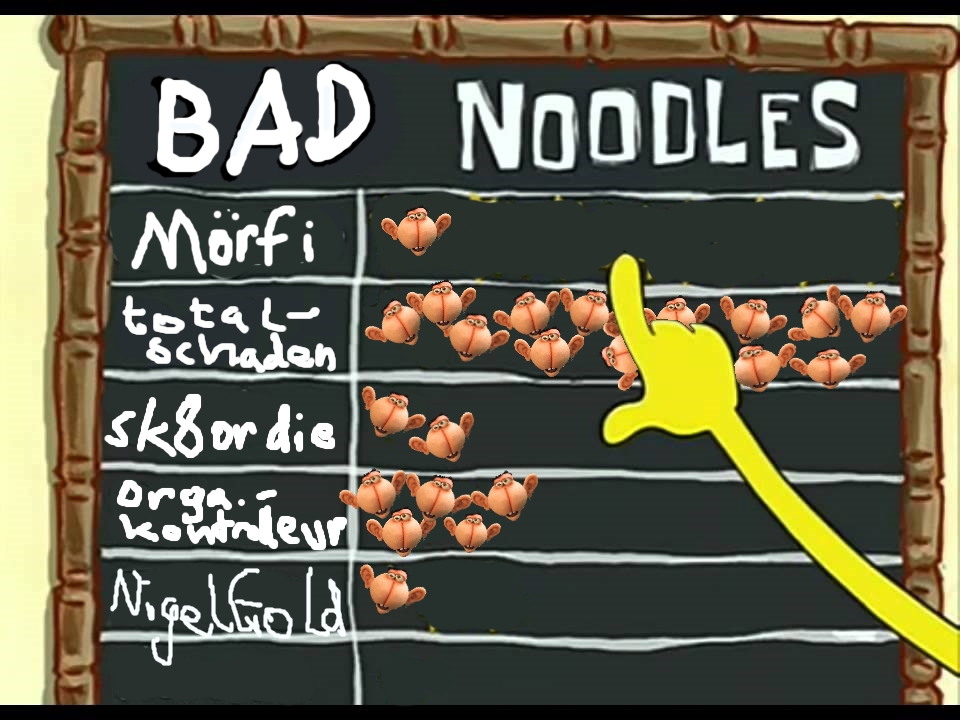 BAD NOODLES
Mörfi
total-
schaden
sk8ordie
orga.-
kontrolleur
NigelGold